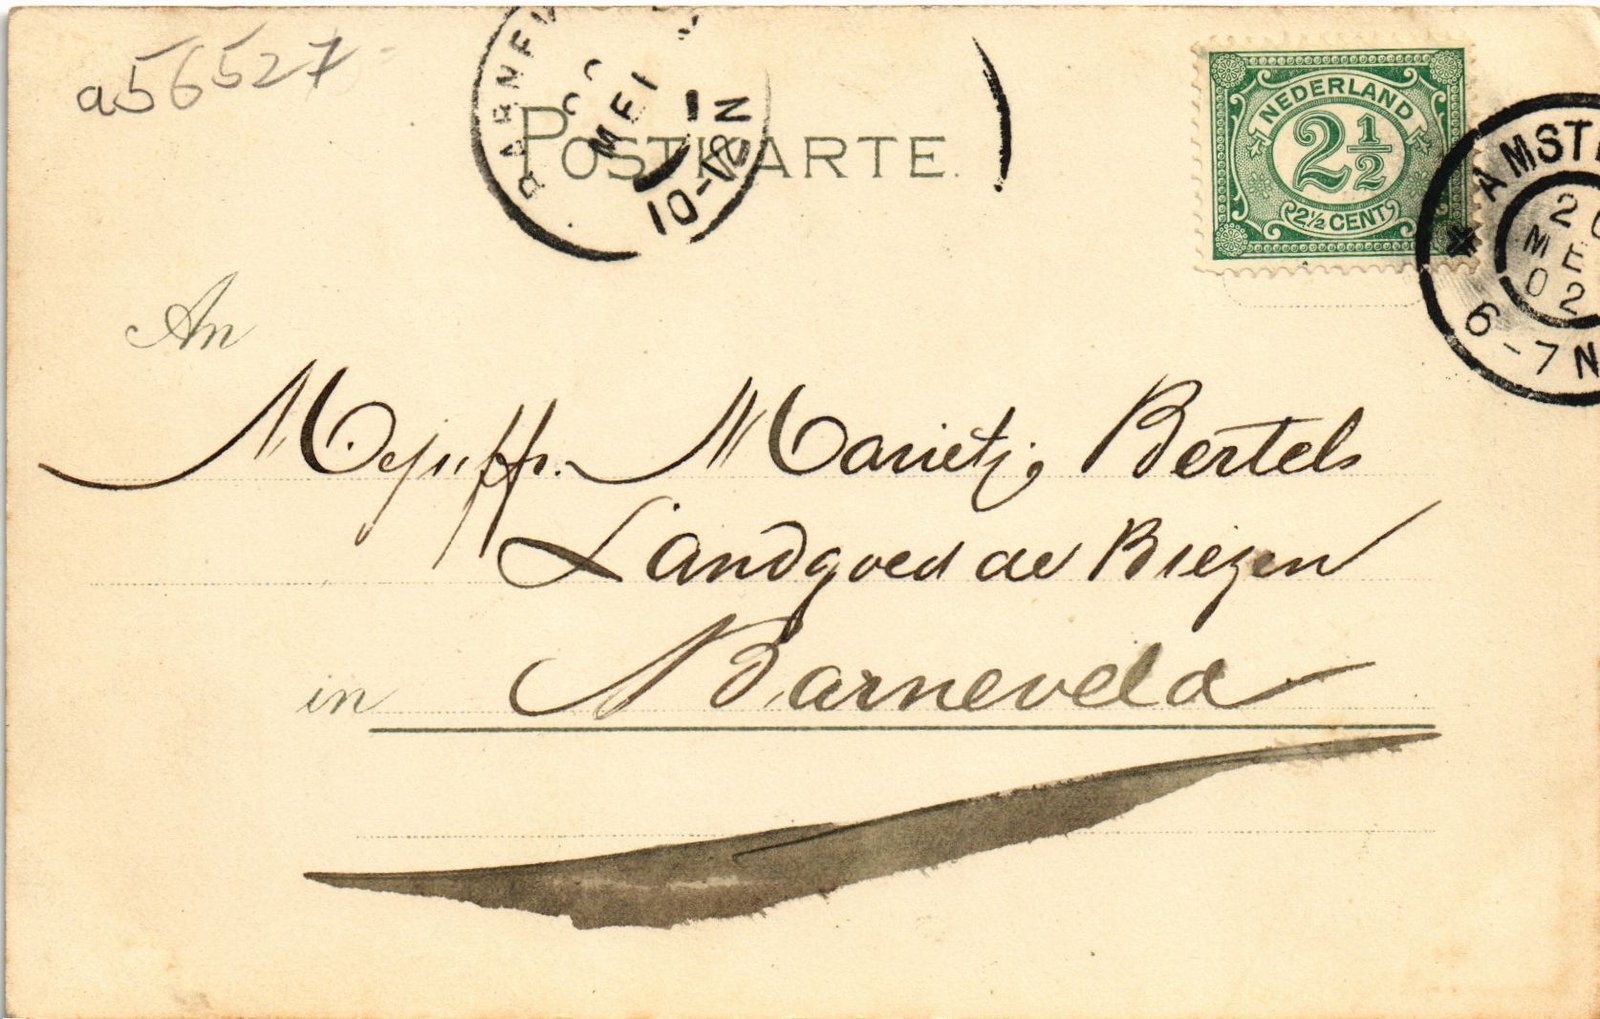 a56527
BARNEV
MEI
10-12N
POSTKARTE.
NEDERLAND
2½
2½ CENT
AMSTE
20
ME
02
6-7N
An
Mejuffr. Marietje Bertels
Landgoed de Biezen
in Barneveld